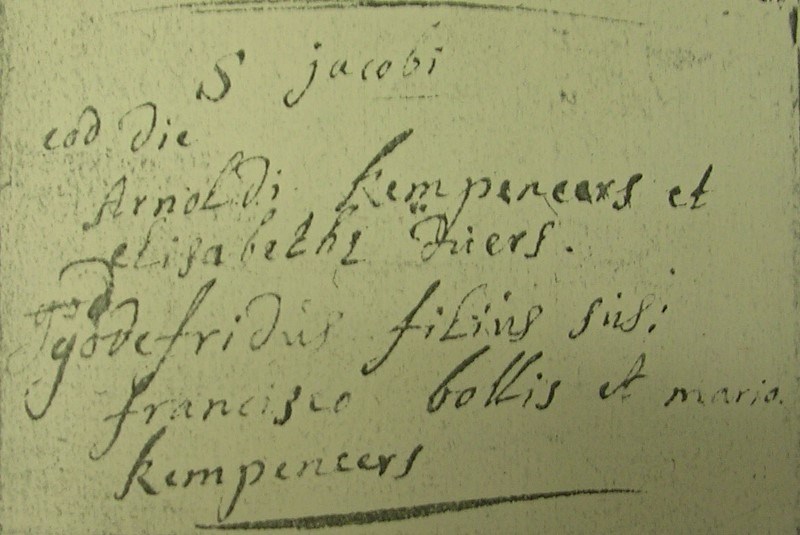 S jacobi
eod die
Arnoldi kempeneers et
elisabethę
godefridus filius sus;
francisco bollis et maria
kempeneers